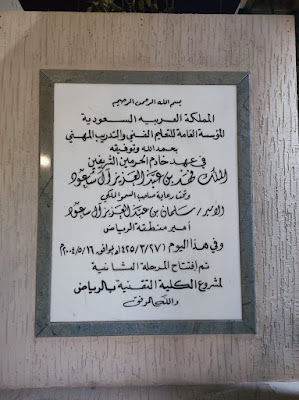 بسم الله الرحمن الرحيم
المملكة العربيه السعودية
المؤسسة العامة للتعليم الفني والتدريب المهني
بحمد الله وتوفيقه
في عهد خادم الحرمين الشريفين
الملك فهد بن عبد العزيز آل سعود
وتحت رعاية صاحب السمو الملكي
الامير / سلمان بن عبد العزيز آل سعود
أمير منطقة الرياض
وفي هذا اليوم ١٤٢٥/٣/٢٧ ٢٠٠٤/٥/١٦م
تم افتتاح المرحلة الثانية
لمشروع الكلية التقنية بالرياض
والله الموفق